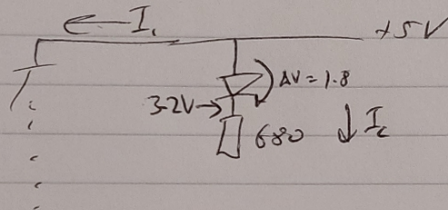 ← I₁
+5V
ΔV = 1.8
3.2V →
680
↓ I₂